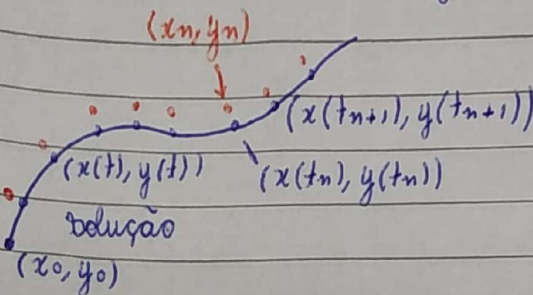 (xn, yn)
(x(tn+1), y(tn+1))
(x(t), y(t))
(x(tn), y(tn))
Solução
(x0, y0)